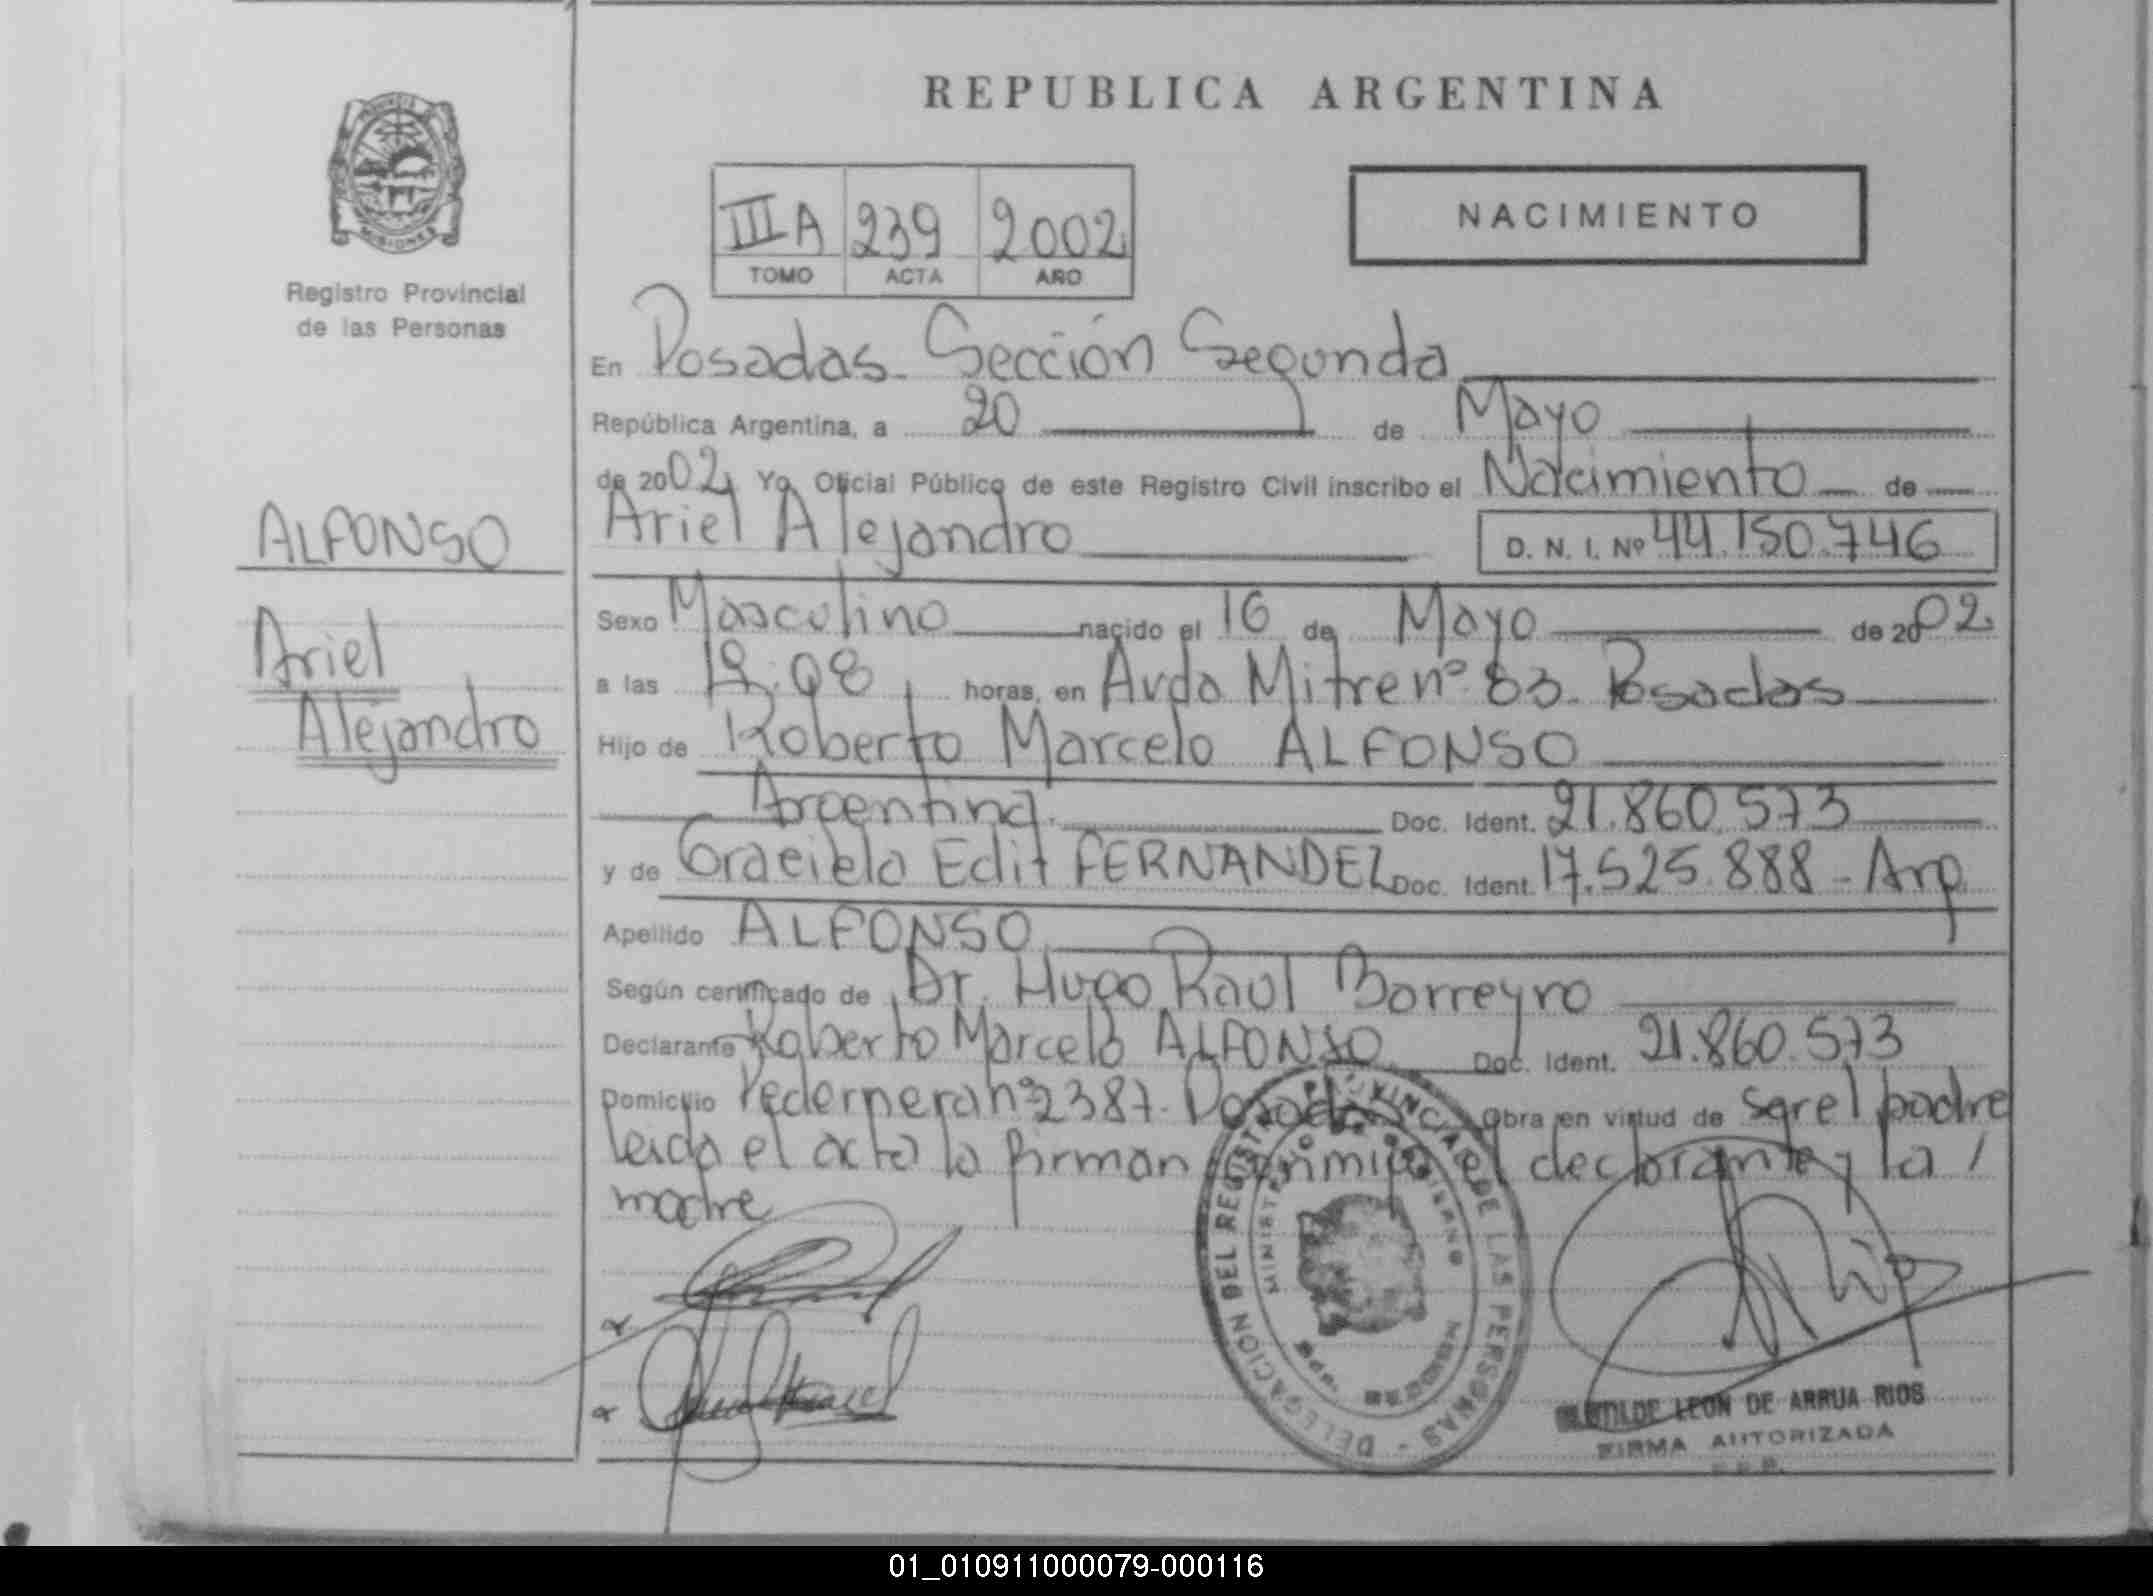 REPUBLICA ARGENTINA
MISIONES
Registro Provincial
de las Personas
IIIA 239 2002
TOMO ACTA AÑO
NACIMIENTO
En Posadas - Sección Segunda
República Argentina, a 20 de Mayo
de 2002, Yo Oficial Público de este Registro Civil inscribo el Nacimiento de
Ariel Alejandro D. N. I. Nº 44.150.746
ALFONSO
Ariel
Alejandro
Sexo Masculino nacido el 16 de Mayo de 2002.
a las horas, en Avda Mitre nº 83. Posadas
Hijo de Roberto Marcelo ALFONSO
Argentina. Doc. Ident. 21.860.573
y de Graciela Edit FERNANDEZ Doc. Ident. 17.525.888 - Arg
Apellido ALFONSO
Según certificado de Dr. Hugo Raul Borreyro
Declarante Roberto Marcelo ALFONSO Doc. Ident. 21.860.573
Domicilio Pedernera nº 2387 - Posadas Obra en virtud de ser el padre
leida el acta la firman conmigo el declarante y la
madre
DELEGACION DEL REGISTRO PROVINCIAL DE LAS PERSONAS
MINISTERIO DE GOBIERNO
LEON DE ARRUA RIOS
FIRMA AUTORIZADA
01_010911000079-000116